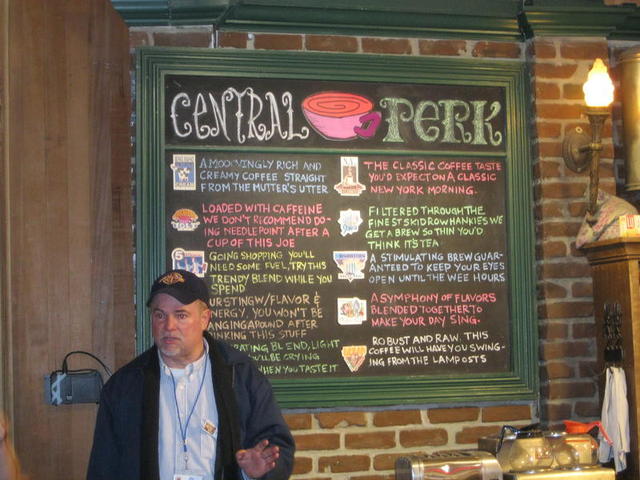 CENTRAL PERK
A MOOOVINGLY RICH AND
CREAMY COFFEE STRAIGHT
FROM THE MUTTER'S UTTER
LOADED WITH CAFFEINE
WE DON'T RECOMMEND DO-
ING NEEDLEPOINT AFTER A
CUP OF THIS JOE
GOING SHOPPING YOU'LL
NEED SOME FUEL, TRY THIS
TRENDY BLEND WHILE YOU
SPEND
URSTING W/ FLAVOR &
NERGY, YOU WON'T BE
ANGING AROUND AFTER
INKING THIS STUFF
ATING BLEND, LIGHT
'LL BE CRYING
WHEN YOU TASTE IT
THE CLASSIC COFFEE TASTE
YOU'D EXPECT ON A CLASSIC
NEW YORK MORNING.
FILTERED THROUGH THE
FINEST SKID ROW HANKIES WE
GET A BREW SO THIN YOU'D
THINK IT'S TEA
A STIMULATING BREW GUAR-
ANTEED TO KEEP YOUR EYES
OPEN UNTIL THE WEE HOURS
A SYMPHONY OF FLAVORS
BLENDED TOGETHER TO
MAKE YOUR DAY SING.
ROBUST AND RAW. THIS
COFFEE WILL HAVE YOU SWING-
ING FROM THE LAMP OSTS